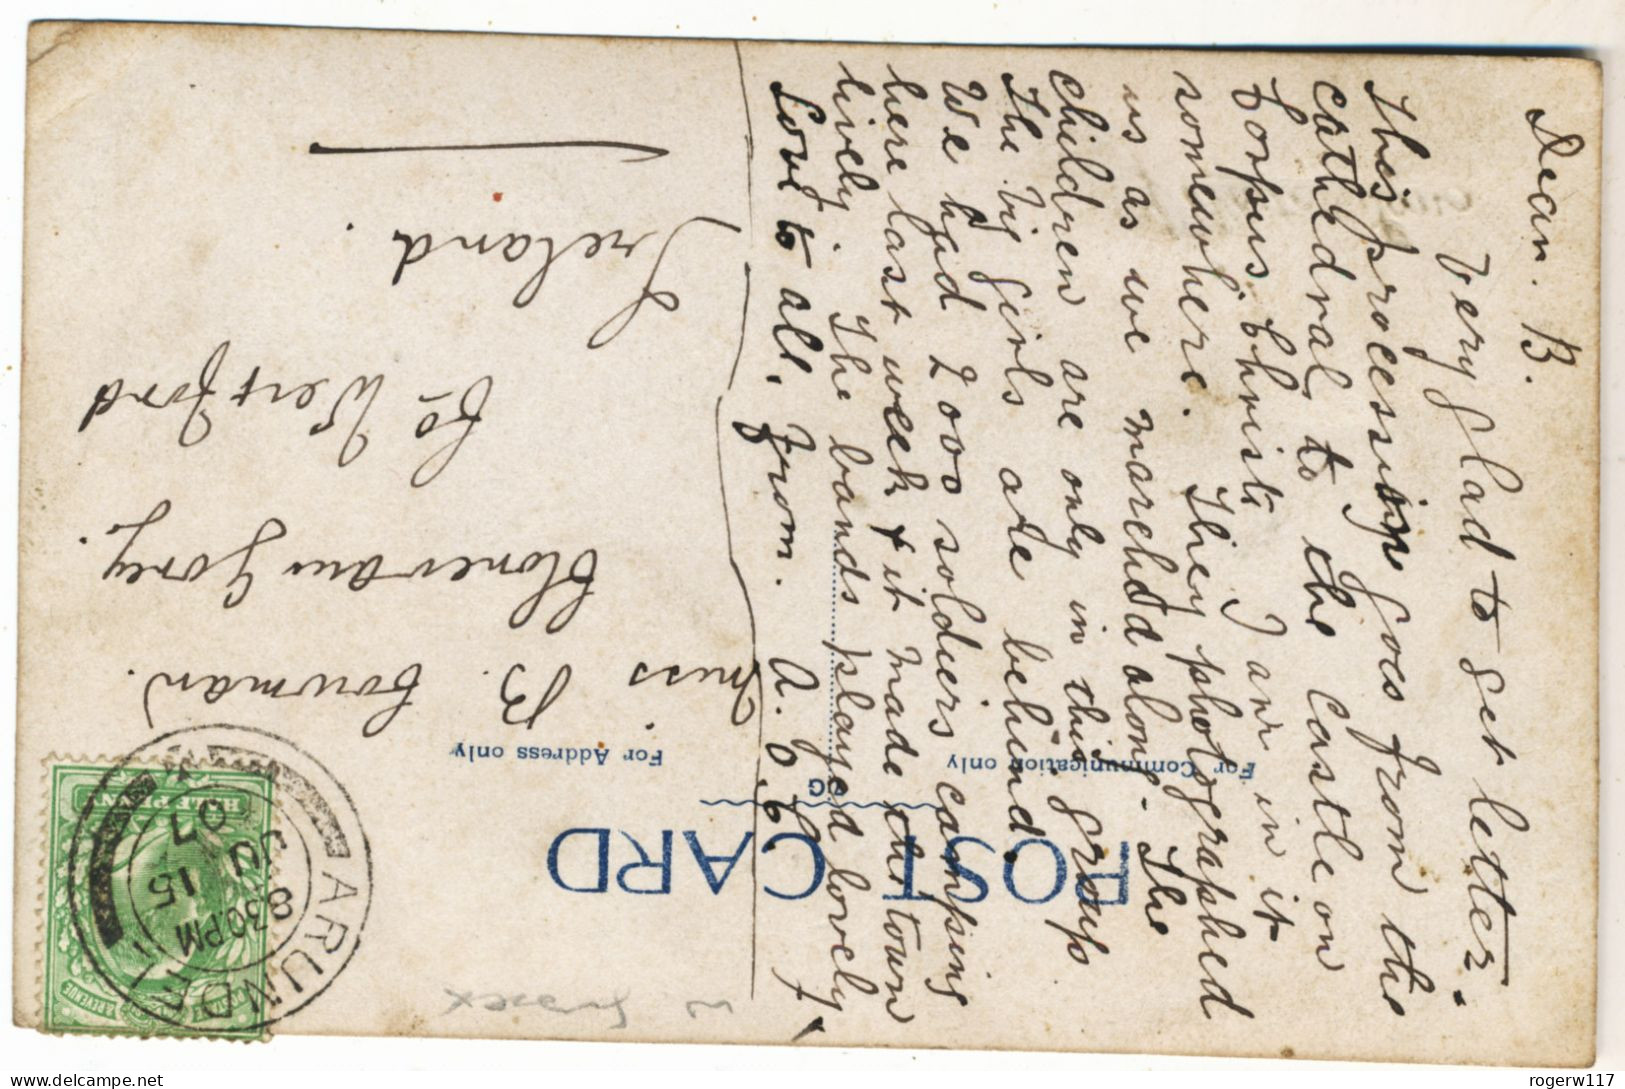 Dear. B.
Very glad to get letter.
This procession goes from the
cathedral to the castle on
Corpus Christi I am in it
somewhere. They photographed
us as we marched along - The
children are only in this group
The big girls are behind.
We had 2000 soldiers camping
here last week & it made the town
lively. The bands played lovely
Love to all. from. A. O.
POST CARD
For Communication only
For Address only
Miss B. Bowman.
Gorey.
Co Wexford
Ireland.
ARUNDEL
8.30PM
15
JU
07
HALF PENNY
& REVENUE
W Sussex
rogerw117